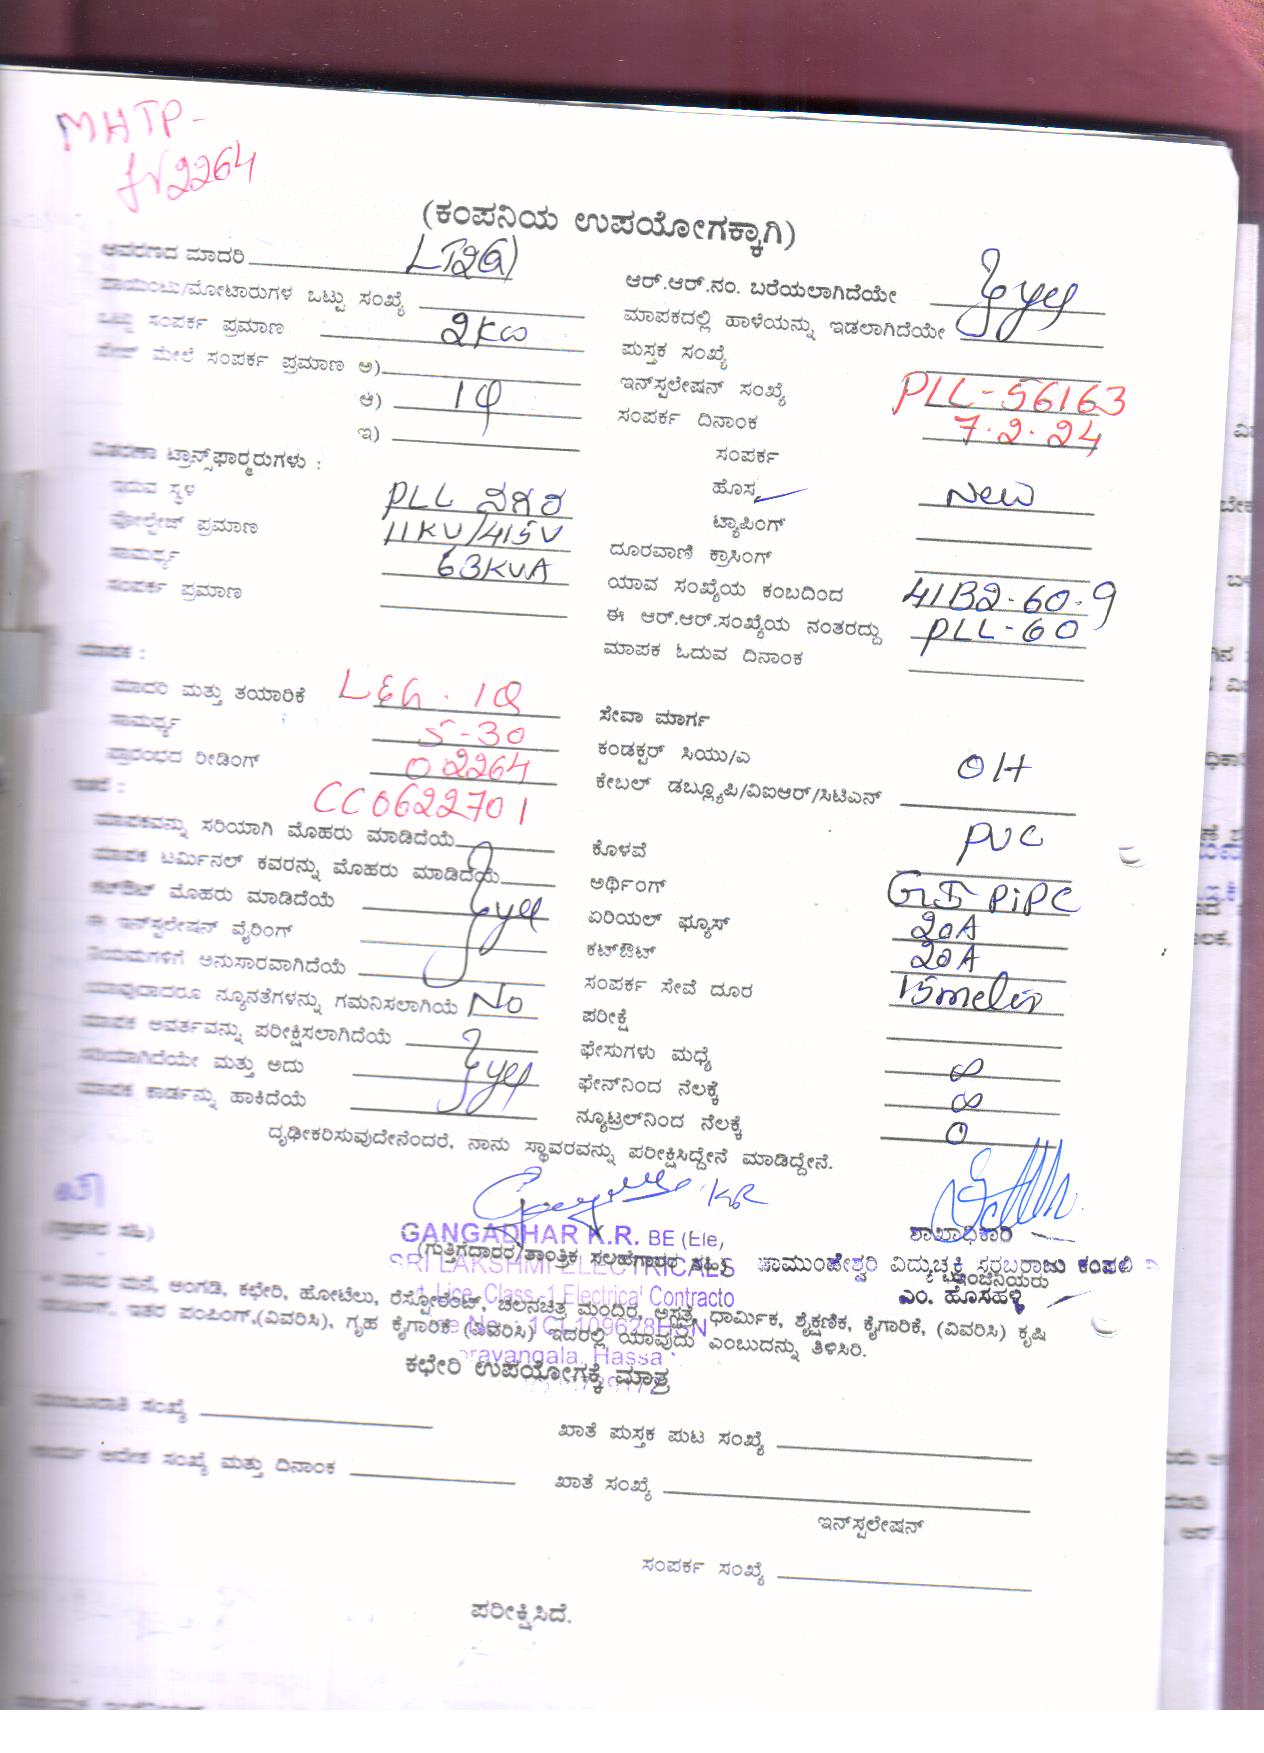 MHTP-
2264
(ಕಂಪನಿಯ ಉಪಯೋಗಕ್ಕಾಗಿ)
ಆವರಣದ ಮಾದರಿ LT2(a)
ಪಾಯಿಂಟು/ಮೋಟಾರುಗಳ ಒಟ್ಟು ಸಂಖ್ಯೆ
ಒಟ್ಟು ಸಂಪರ್ಕ ಪ್ರಮಾಣ 2KW
ಮೇಲೆ ಸಂಪರ್ಕ ಪ್ರಮಾಣ ಅ)
ಆ) 1φ
ಇ)
ವಿತರಣಾ ಟ್ರಾನ್ಸ್‌ಫಾರ್ಮರುಗಳು :
ಇರುವ ಸ್ಥಳ PLL ನಗರ
ವೋಲ್ಟೇಜ್ ಪ್ರಮಾಣ 11KV/415V
ಸಾಮರ್ಥ್ಯ 63KVA
ಸಂಪರ್ಕ ಪ್ರಮಾಣ
ಮಾಪಕ :
ಮಾದರಿ ಮತ್ತು ತಯಾರಿಕೆ L&G. 1φ
ಸಾಮರ್ಥ್ಯ 5-30
ಪ್ರಾರಂಭದ ರೀಡಿಂಗ್ 02264
ಇತರೆ :
CC0622701
ಮಾಪಕವನ್ನು ಸರಿಯಾಗಿ ಮೊಹರು ಮಾಡಿದೆಯೆ
ಮಾಪಕ ಟರ್ಮಿನಲ್ ಕವರನ್ನು ಮೊಹರು ಮಾಡಿದೆಯೆ
ಕಟ್‌ಔಟ್ ಮೊಹರು ಮಾಡಿದೆಯೆ yes
ಈ ಇನ್‌ಸ್ಟಲೇಷನ್ ವೈರಿಂಗ್
ನಿಯಮಗಳಿಗೆ ಅನುಸಾರವಾಗಿದೆಯೆ
ಯಾವುದಾದರೂ ನ್ಯೂನತೆಗಳನ್ನು ಗಮನಿಸಲಾಗಿಯೆ No
ಮಾಪಕ ಆವರ್ತವನ್ನು ಪರೀಕ್ಷಿಸಲಾಗಿದೆಯೆ
ಸರಿಯಾಗಿದೆಯೇ ಮತ್ತು ಅದು yes
ಮಾಪಕ ಕಾರ್ಡನ್ನು ಹಾಕಿದೆಯೆ
ಆರ್.ಆರ್.ನಂ. ಬರೆಯಲಾಗಿದೆಯೇ yes
ಮಾಪಕದಲ್ಲಿ ಹಾಳೆಯನ್ನು ಇಡಲಾಗಿದೆಯೇ
ಪುಸ್ತಕ ಸಂಖ್ಯೆ
ಇನ್‌ಸ್ಟಲೇಷನ್ ಸಂಖ್ಯೆ PLL-56163
ಸಂಪರ್ಕ ದಿನಾಂಕ 7.2.24
ಸಂಪರ್ಕ
ಹೊಸ New
ಟ್ಯಾಪಿಂಗ್
ದೂರವಾಣಿ ಕ್ರಾಸಿಂಗ್
ಯಾವ ಸಂಖ್ಯೆಯ ಕಂಬದಿಂದ 41B2-60-9
ಈ ಆರ್.ಆರ್.ಸಂಖ್ಯೆಯ ನಂತರದ್ದು PLL-60
ಮಾಪಕ ಓದುವ ದಿನಾಂಕ
ಸೇವಾ ಮಾರ್ಗ
ಕಂಡಕ್ಟರ್ ಸಿಯು/ಎ OH
ಕೇಬಲ್ ಡಬ್ಲ್ಯೂಪಿ/ವಿಐಆರ್/ಸಿಟಿಎಸ್
ಕೊಳವೆ PVC
ಅರ್ಥಿಂಗ್ GI PiPC
ಏರಿಯಲ್ ಫ್ಯೂಸ್ 20A
ಕಟ್‌ಔಟ್ 20A
ಸಂಪರ್ಕ ಸೇವೆ ದೂರ 15meter
ಪರೀಕ್ಷೆ
ಫೇಸುಗಳು ಮಧ್ಯೆ ∞
ಫೇಸ್‌ನಿಂದ ನೆಲಕ್ಕೆ ∞
ನ್ಯೂಟ್ರಲ್‌ನಿಂದ ನೆಲಕ್ಕೆ 0
ದೃಢೀಕರಿಸುವುದೇನೆಂದರೆ, ನಾನು ಸ್ಥಾವರವನ್ನು ಪರೀಕ್ಷಿಸಿದ್ದೇನೆ ಮಾಡಿದ್ದೇನೆ.
GANGADHAR K.R. BE (Ele,
(ಗುತ್ತಿಗೆದಾರರ/ತಾಂತ್ರಿಕ ಸಲಹೆಗಾರರ ಸಹಿ)
SRI LAKSHMI ELECTRICALS
Class-1 Electrical Contracto
1CL109628HSN
ಶಾಖಾಧಿಕಾರಿ
ಚಾಮುಂಡೇಶ್ವರಿ ವಿದ್ಯುಚ್ಛಕ್ತಿ ಸರಬರಾಜು ಕಂಪಲಿ
ಇಂಜಿನಿಯರು
ಎಂ. ಹೊಸಹಳ್ಳಿ
ಮನೆ, ಅಂಗಡಿ, ಕಛೇರಿ, ಹೋಟೆಲು, ರೆಸ್ಟೋರೆಂಟ್, ಚಲನಚಿತ್ರ ಮಂದಿರ, ಆಸ್ಪತ್ರೆ, ಧಾರ್ಮಿಕ, ಶೈಕ್ಷಣಿಕ, ಕೈಗಾರಿಕೆ, (ವಿವರಿಸಿ) ಕೃಷಿ
ಇತರ ಪಂಪಿಂಗ್,(ವಿವರಿಸಿ), ಗೃಹ ಕೈಗಾರಿಕೆ (ವಿವರಿಸಿ) ಇದರಲ್ಲಿ ಯಾವುದು ಎಂಬುದನ್ನು ತಿಳಿಸಿರಿ.
ಕಛೇರಿ ಉಪಯೋಗಕ್ಕೆ ಮಾತ್ರ
ಮಂಜೂರಾತಿ ಸಂಖ್ಯೆ
ಖಾತೆ ಪುಸ್ತಕ ಪುಟ ಸಂಖ್ಯೆ
ಕಾರ್ಯ ಆದೇಶ ಸಂಖ್ಯೆ ಮತ್ತು ದಿನಾಂಕ
ಖಾತೆ ಸಂಖ್ಯೆ
ಇನ್‌ಸ್ಟಲೇಷನ್
ಸಂಪರ್ಕ ಸಂಖ್ಯೆ
ಪರೀಕ್ಷಿಸಿದೆ.